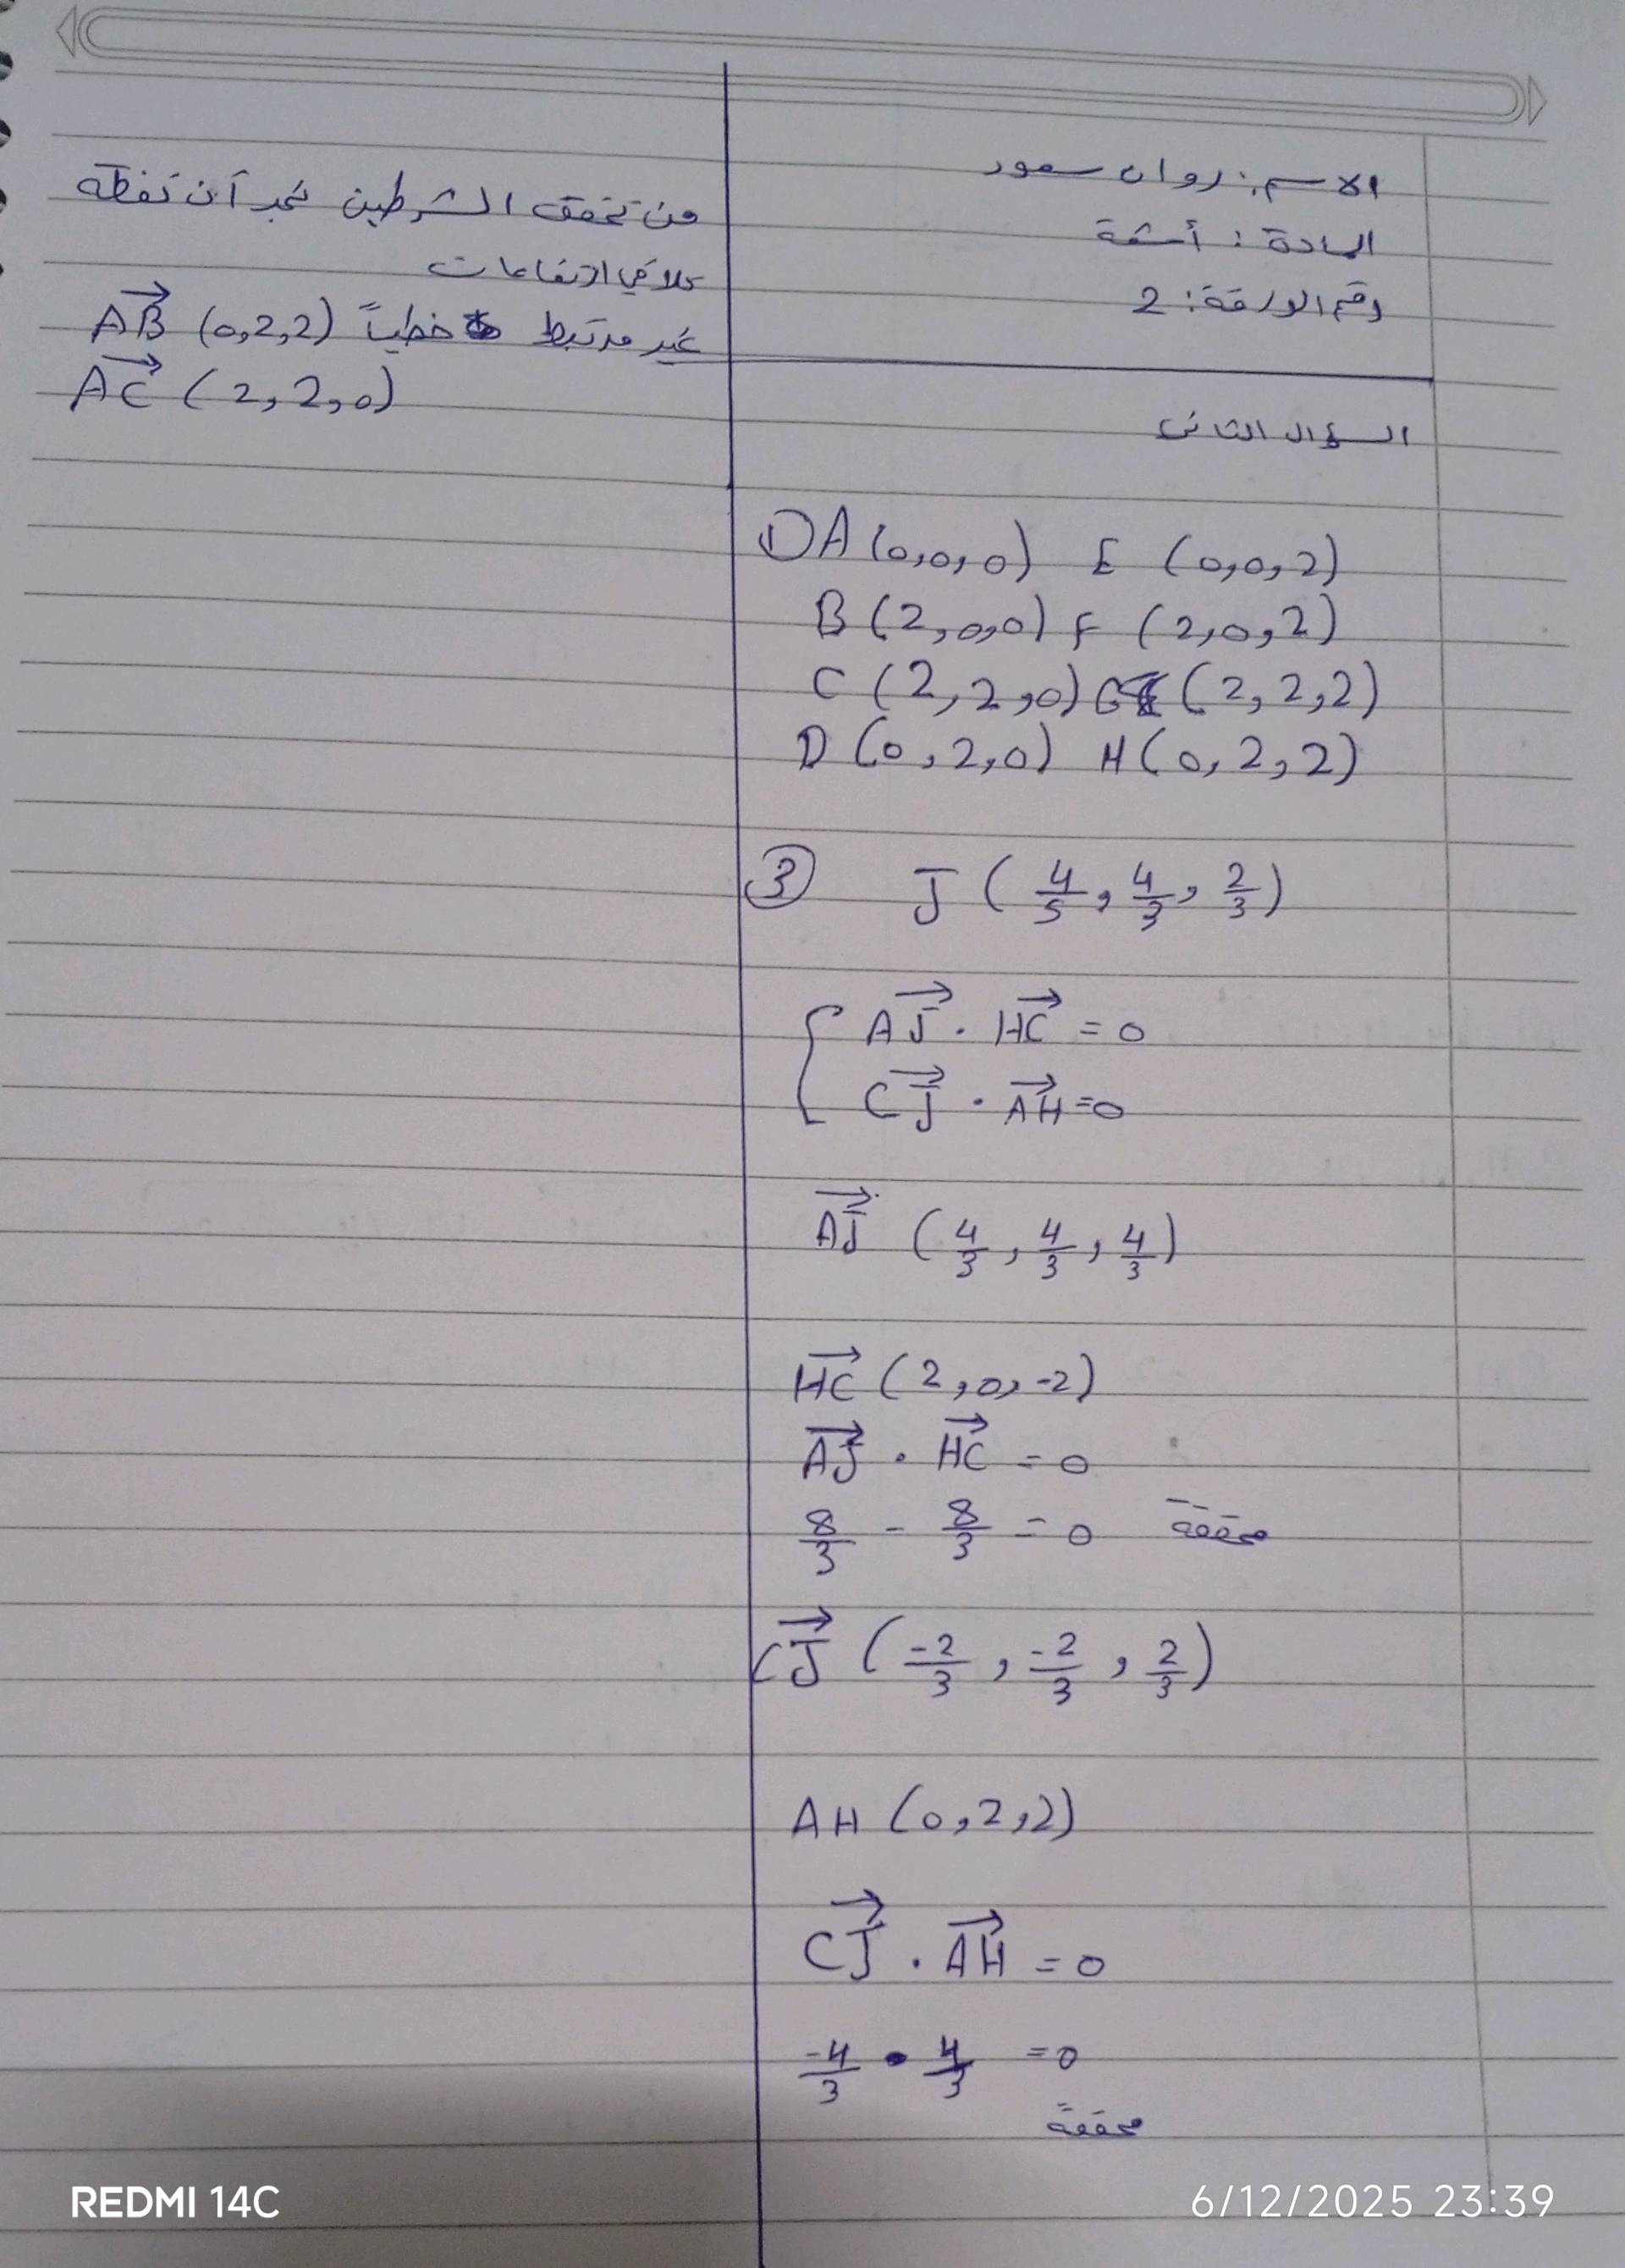 الاسم: روان سعود
المادة: أشعة
رقم الورقة: 2
السؤال الثاني
① A (0,0,0) E (0,0,2)
B (2,0,0) F (2,0,2)
C (2,2,0) G (2,2,2)
D (0,2,0) H (0,2,2)
③ J (4/5, 4/3, 2/3)
{ AJ⃗ . HC⃗ = 0
CJ⃗ . AH⃗ = 0
AJ⃗ (4/3, 4/3, 4/3)
HC⃗ (2,0,-2)
AJ⃗ . HC⃗ = 0
8/3 - 8/3 = 0 محققة
CJ⃗ (-2/3, -2/3, 2/3)
AH (0,2,2)
CJ⃗ . AH⃗ = 0
-4/3 • 4/3 = 0
محققة
من تحقق الشرطين نجد أن نقطة
تلاقي ارتفاعات
غير مرتبط خطياً AB⃗ (0,2,2)
AC⃗ (2,2,0)
REDMI 14C
6/12/2025 23:39